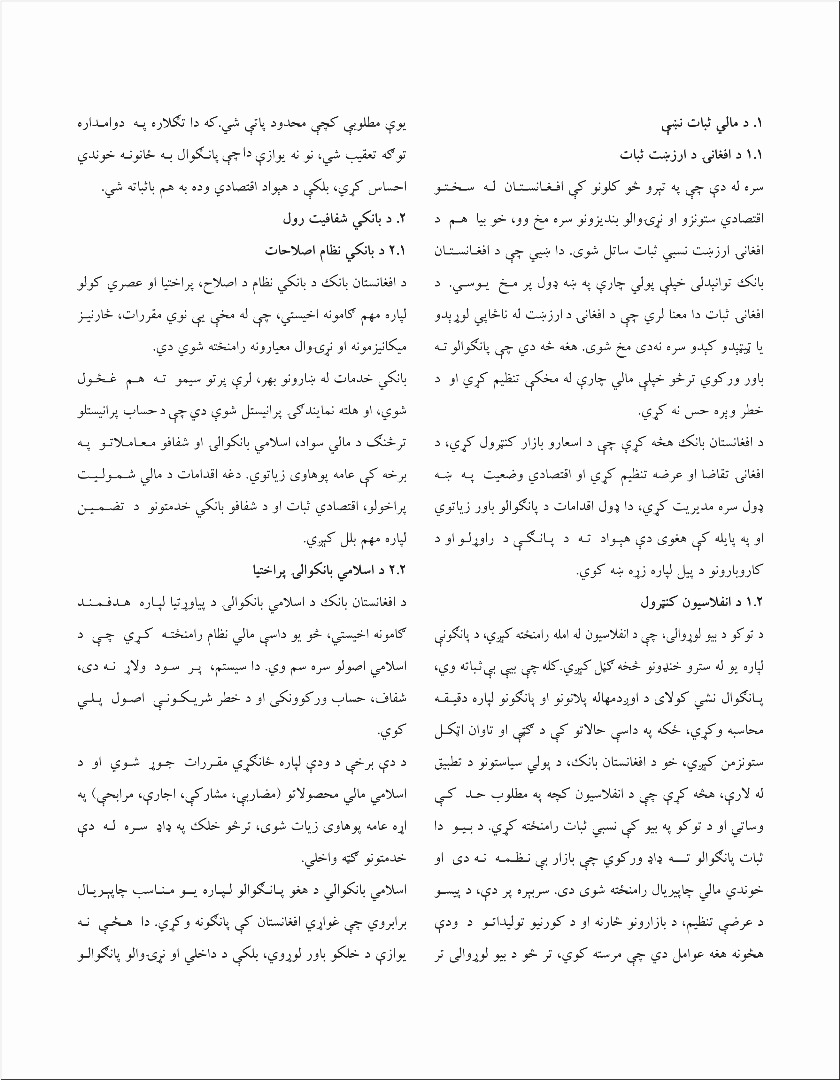 ۱. د مالي ثبات نښې
۱.۱ د افغانۍ د ارزښت ثبات
سره له دې چې په تېرو څو کلونو کې افغانستان له سختو
اقتصادي ستونزو او نړۍوالو بندیزونو سره مخ وو، خو بیا هم د
افغانۍ ارزښت نسبي ثبات ساتل شوی. دا ښیي چې د افغانستان
بانک توانېدلی خپلې پولي چارې په ښه ډول پر مخ یوسي. د
افغانۍ ثبات دا معنا لري چې د افغانۍ د ارزښت له ناڅاپي لوړېدو
یا ټیټېدو کېدو سره نه‌دی مخ شوی. هغه څه دي چې پانګوالو ته
باور ورکوي ترڅو خپلې مالي چارې له مخکې تنظیم کړي او د
خطر وېره حس نه کړي.
د افغانستان بانک هڅه کړې چې د اسعارو بازار کنټرول کړي، د
افغانۍ تقاضا او عرضه تنظیم کړي او اقتصادي وضعیت په ښه
ډول سره مدیریت کړي، دا ډول اقدامات د پانګوالو باور زیاتوي
او په پایله کې هغوی دې هېواد ته د پانګې د راوړلو او د
کاروبارونو د پیل لپاره زړه ښه کوي.
۱.۲ د انفلاسیون کنټرول
د توکو د بیو لوړوالی، چې د انفلاسیون له امله رامنځته کېږي، د پانګونې
لپاره یو له سترو خنډونو څخه ګڼل کېږي.کله چې بیې بې‌ثباته وي،
پانګوال نشي کولای د اوږدمهاله پلانونو او پانګونو لپاره دقیقه
محاسبه وکړي، ځکه په داسې حالاتو کې د ګټې او تاوان اټکل
ستونزمن کېږي، خو د افغانستان بانک، د پولي سیاستونو د تطبیق
له لارې، هڅه کړې چې د انفلاسیون کچه په مطلوب حد کې
وساتي او د توکو په بیو کې نسبي ثبات رامنځته کړي. د بیو دا
ثبات پانګوالو ته ډاډ ورکوي چې بازار بې نظمه نه دی او
خوندي مالي چاپیریال رامنځته شوی دی. سربېره پر دې، د پیسو
د عرضې تنظیم، د بازارونو څارنه او د کورنیو تولیداتو د ودې
هڅونه هغه عوامل دي چې مرسته کوي، تر څو د بیو لوړوالی تر
یوې مطلوبې کچې محدود پاتې شي.که دا تګلاره په دوامداره
توګه تعقیب شي، نو نه یوازې دا چې پانګوال به ځانونه خوندي
احساس کړي، بلکې د هېواد اقتصادي وده به هم باثباته شي.
۲. د بانکي شفافیت رول
۲.۱ د بانکي نظام اصلاحات
د افغانستان بانک د بانکي نظام د اصلاح، پراختیا او عصري کولو
لپاره مهم ګامونه اخیستي، چې له مخې یې نوي مقررات، څارنیز
میکانیزمونه او نړۍوال معیارونه رامنځته شوي دي.
بانکي خدمات له ښارونو بهر، لرې پرتو سیمو ته هم غځول
شوي، او هلته نمایندګۍ پرانیستل شوې دي چې د حساب پرانیستلو
ترڅنګ د مالي سواد، اسلامي بانکوالۍ او شفافو معاملاتو په
برخه کې عامه پوهاوی زیاتوي. دغه اقدامات د مالي شمولیت
پراخولو، اقتصادي ثبات او د شفافو بانکي خدمتونو د تضمین
لپاره مهم بلل کېږي.
۲.۲ د اسلامي بانکوالۍ پراختیا
د افغانستان بانک د اسلامي بانکوالۍ د پیاوړتیا لپاره هدفمند
ګامونه اخیستي، څو یو داسې مالي نظام رامنځته کړي چې د
اسلامي اصولو سره سم وي. دا سیستم، پر سود ولاړ نه دی،
شفاف، حساب ورکوونکی او د خطر شریکونې اصول پلي
کوي.
د دې برخې د ودې لپاره ځانګړي مقررات جوړ شوي او د
اسلامي مالي محصولاتو (مضاربې، مشارکې، اجارې، مرابحې) په
اړه عامه پوهاوی زیات شوی، ترڅو خلک په ډاډ سره له دې
خدمتونو ګټه واخلي.
اسلامي بانکوالي د هغو پانګوالو لپاره یو مناسب چاپیریال
برابروي چې غواړي افغانستان کې پانګونه وکړي. دا هڅې نه
یوازې د خلکو باور لوړوي، بلکې د داخلي او نړۍوالو پانګوالو